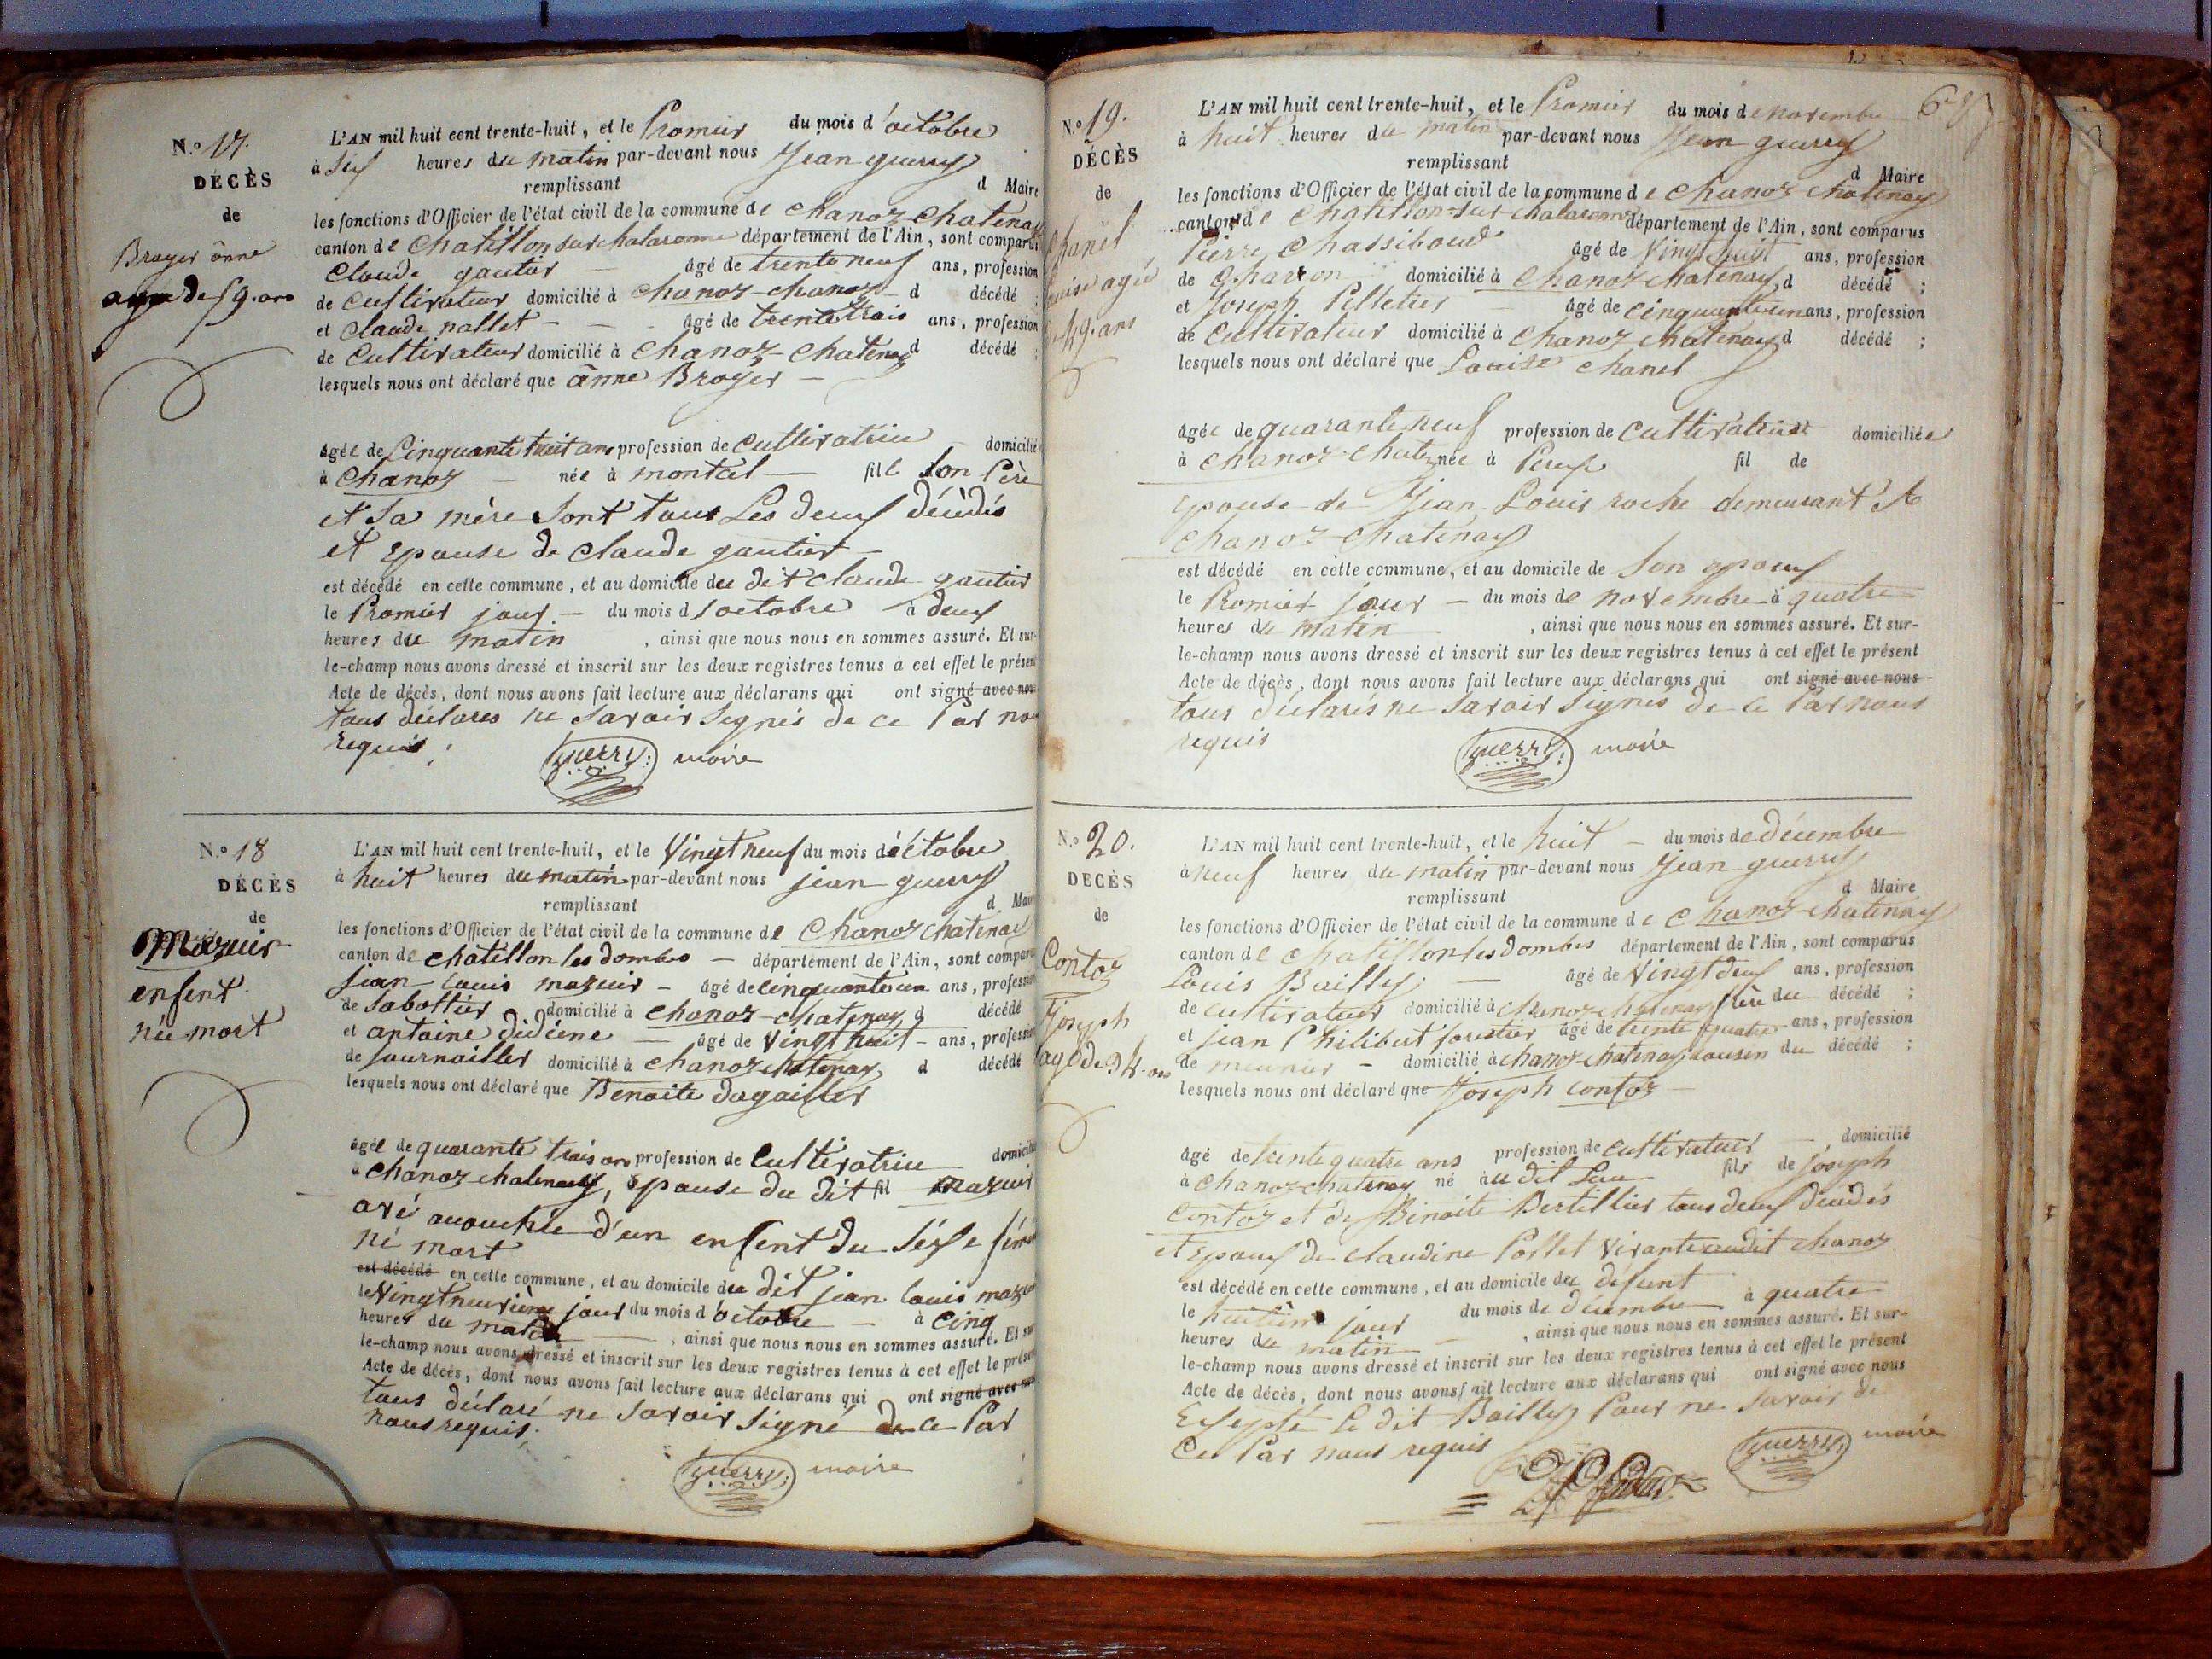 N.o 17.
DÉCÈS
de
Broyer ânne
agee de 59. ans
L'AN mil huit cent trente-huit, et le Promier du mois d'octobre
à Six heures du matin par-devant nous Jean guerry
remplissant d Maire
les fonctions d'Officier de l'état civil de la commune de chanoz chatenay
canton de chatillon sur chalaronne département de l'Ain, sont comparus
Claude gautier âgé de trente neuf ans, profession
de cultivateur domicilié à chanoz-chanoz d décédé ;
et claude nallet âgé de trente trois ans, profession
de Cultivateur domicilié à chanoz-chatenay d décédé ;
lesquels nous ont déclaré que ânne Broyer
âgée de Cinquante huit ans profession de cultivatrice domicilié
à chanoz née à montcel fille Son Père
et Sa mère Sont tous Les deux décèdés
et Epouse de claude gautier
est décédé en cette commune, et au domicile du dit claude gautier
le Promier jour du mois d'octobre à deux
heures du matin , ainsi que nous nous en sommes assuré. Et sur-
le-champ nous avons dressé et inscrit sur les deux registres tenus à cet effet le présent
Acte de décès, dont nous avons fait lecture aux déclarans qui ont signé avec nous
tous déclares ne Savoir Signés de ce Par nous
requis ;
guerry maire
N.o 18
DÉCÈS
de
Mazuir
enfent
né mort
L'AN mil huit cent trente-huit, et le Vingt neuf du mois d'octobre
à huit heures du matin par-devant nous jean guerry
remplissant d Maire
les fonctions d'Officier de l'état civil de la commune de Chanoz chatenay
canton de chatillon les dombes département de l'Ain, sont comparus
jean louis mazuir âgé de cinquante un ans, profession
de Sabottier domicilié à chanoz-chatenay d décédé
et antoine didiene âgé de Vingt huit ans, profession
de journaillier domicilié à chanoz chatenay d décédé
lesquels nous ont déclaré que Benoite dagaillier
âgée de quarante trois ans profession de Cultivatrice domicilié
à chanoz chatenay, épouse du dit fil mazuir
avé accouchée d'un enfent du Séxe fém
né mort
est décédé en cette commune, et au domicile du dit jean louis mazuir
le Vingt neuvième jour du mois d'octobre à Cinq
heures du matin , ainsi que nous nous en sommes assuré. Et sur
le-champ nous avons dressé et inscrit sur les deux registres tenus à cet effet le présent
Acte de décès, dont nous avons fait lecture aux déclarans qui ont signé avec nous
tous déclaré ne Savoir Signé de ce Par
nous requis.
guerry maire
N.o 19.
DÉCÈS
de
Chanel
Louise agée
de 49. ans
L'AN mil huit cent trente-huit, et le Promier du mois de novembre
à huit heures du matin par-devant nous Jean guerry
remplissant d Maire
les fonctions d'Officier de l'état civil de la commune de chanoz chatenay
canton de chatillon-sur-chalaronne département de l'Ain, sont comparus
Pierre Chassiboud âgé de Vingt huit ans, profession
de Charron domicilié à chanoz chatenay d décédé ;
et Joseph Pelletier âgé de cinquante un ans, profession
de Cultivateur domicilié à chanoz chatenay d décédé ;
lesquels nous ont déclaré que Louise chanel
âgée de quarante neuf profession de cultivatrice domiciliée
à chanoz-chate née à Perex fil de
Epouse de Jean Louis roche demeurant A
chanoz-chatenay
est décédé en cette commune, et au domicile de Son epoux
le Promier jour du mois de novembre à quatre
heures du matin , ainsi que nous nous en sommes assuré. Et sur-
le-champ nous avons dressé et inscrit sur les deux registres tenus à cet effet le présent
Acte de décès, dont nous avons fait lecture aux déclarans qui ont signé avec nous
tous déclarés ne Savoir Signés de ce Par nous
requis
guerry maire
N.o 20.
DECÈS
de
Contoz
Joseph
agé de 34. ans
L'AN mil huit cent trente-huit, et le huit du mois de décembre
à neuf heures du matin par-devant nous jean guerry
remplissant d Maire
les fonctions d'Officier de l'état civil de la commune de chanoz-chatenay
canton de chatillon les dombes département de l'Ain, sont comparus
Louis Bailly âgé de Vingt deux ans, profession
de cultivateur domicilié à chanoz chatenay frère du décédé ;
et jean Philibert forestier âgé de trente quatre ans, profession
de meunier domicilié à chanoz chatenay cousin du décédé ;
lesquels nous ont déclaré que Joseph contoz
âgé de trente quatre ans profession de cultivateur domicilié
à chanoz-chatenay né au dit Lieu fils de joseph
Contoz et de Benoite Bertillier tous deux décédés
et Epoux de claudine Pollet vivante audit chanoz
est décédé en cette commune, et au domicile du défunt
le huitième jour du mois de décembre à quatre
heures du matin , ainsi que nous nous en sommes assuré. Et sur-
le-champ nous avons dressé et inscrit sur les deux registres tenus à cet effet le présent
Acte de décès, dont nous avons fait lecture aux déclarans qui ont signé avec nous
Exsepté Le dit Bailly Pour ne Savoir de
Ce Par nous requis
guerry maire